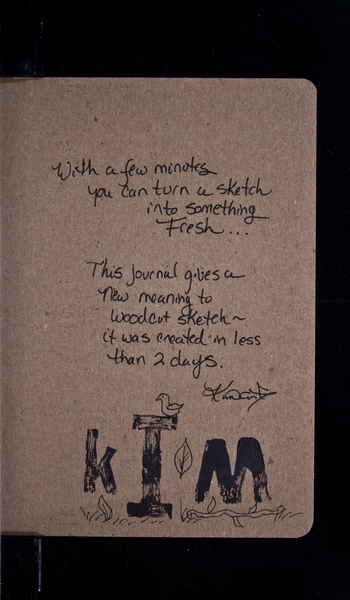 With a few minutes
you can turn a sketch
into something
Fresh...
This journal gives a
new meaning to
woodcut sketch~
it was created in less
than 2 days.
kIM